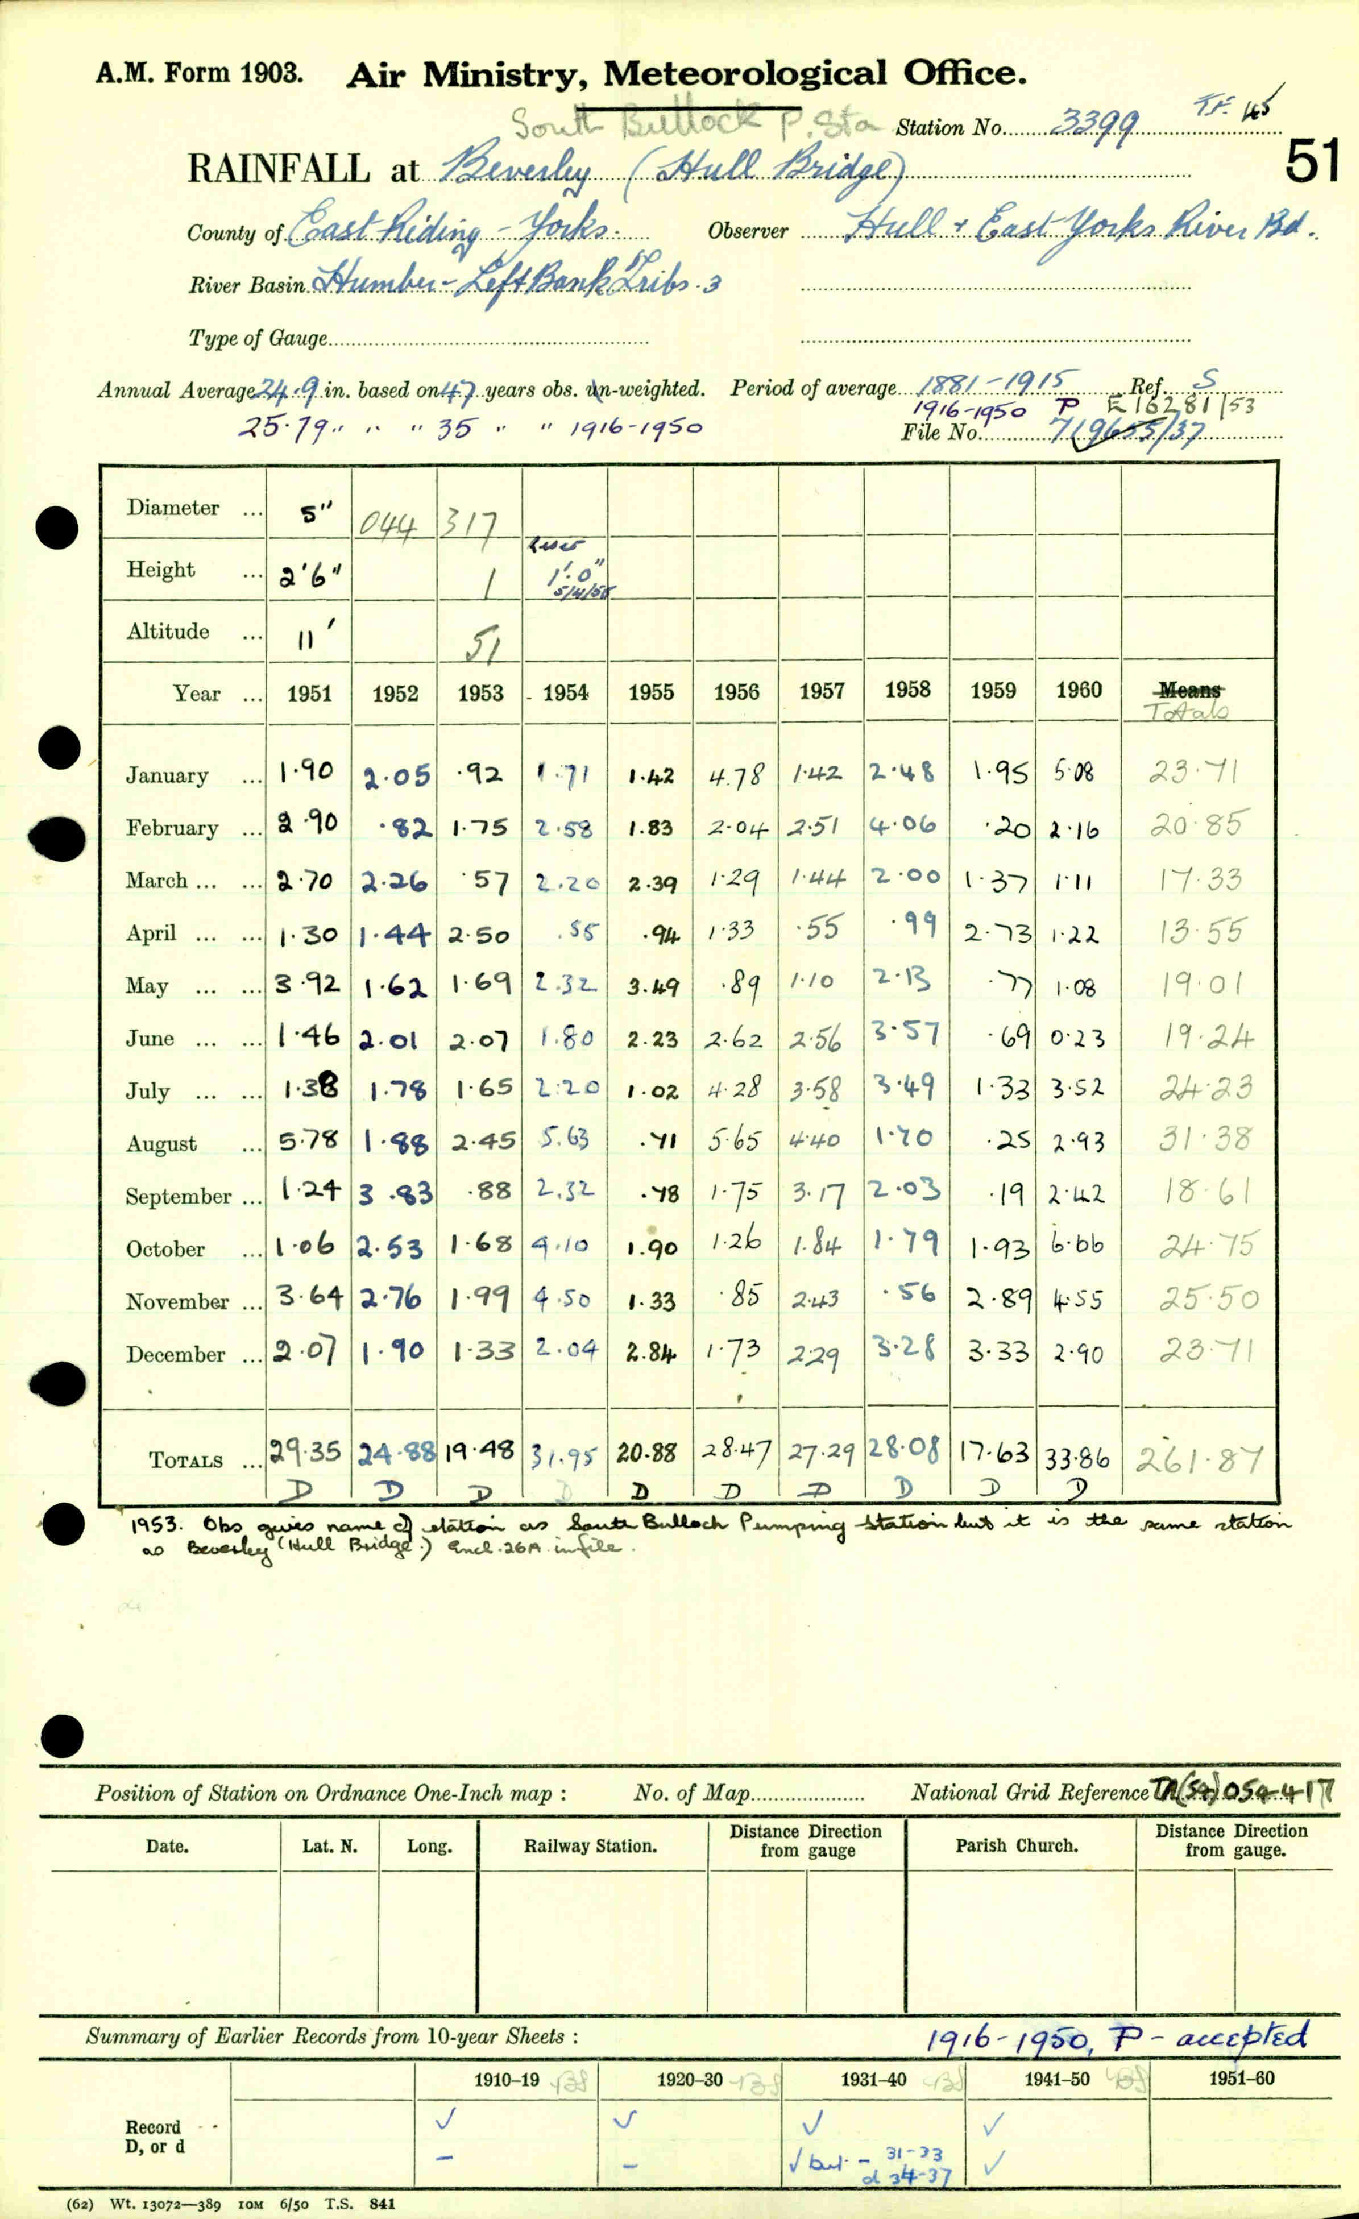 A.M. Form 1903. Air Ministry, Meteorological Office.
South Bullock P. Sta
Station No. 3399 45
51
RAINFALL at Beverley (Hull Bridge)
County of East Riding - Yorks. Observer Hull + East Yorks River Bd.
River Basin Humber - Left Bank Tribs. 3
Type of Gauge
Annual Average 24.9 in. based on 47 years obs. un-weighted. Period of average 1881-1915 Ref. S
1916-1950 P E16281/53
25.79 " " " 35 " " 1916-1950 File No. 719655/37
Diameter ... 5" 044 317
Height ... 2'6" 1 1'.0"
Altitude ... 11' 51
Year ... 1951 1952 1953 1954 1955 1956 1957 1958 1959 1960 Means
Totals
January ... 1.90 2.05 .92 1.71 1.42 4.78 1.42 2.48 1.95 5.08 23.71
February ... 2.90 .82 1.75 2.58 1.83 2.04 2.51 4.06 .20 2.16 20.85
March ... ... 2.70 2.26 .57 2.20 2.39 1.29 1.44 2.00 1.37 1.11 17.33
April ... ... 1.30 1.44 2.50 .55 .94 1.33 .55 .99 2.73 1.22 13.55
May ... ... 3.92 1.62 1.69 2.32 3.49 .89 1.10 2.13 .77 1.08 19.01
June ... ... 1.46 2.01 2.07 1.80 2.23 2.62 2.56 3.57 .69 0.23 19.24
July ... ... 1.38 1.78 1.65 2.20 1.02 4.28 3.58 3.49 1.33 3.52 24.23
August ... 5.78 1.88 2.45 5.63 .71 5.65 4.40 1.70 .25 2.93 31.38
September ... 1.24 3.83 .88 2.32 .78 1.75 3.17 2.03 .19 2.42 18.61
October ... 1.06 2.53 1.68 4.10 1.90 1.26 1.84 1.79 1.93 6.66 24.75
November ... 3.64 2.76 1.99 4.50 1.33 .85 2.43 .56 2.89 4.55 25.50
December ... 2.07 1.90 1.33 2.04 2.84 1.73 2.29 3.28 3.33 2.90 23.71
TOTALS ... 29.35 24.88 19.48 31.95 20.88 28.47 27.29 28.08 17.63 33.86 261.87
D D D D D D D D D D
1953. Obs gives name of station as South Bullock Pumping Station but it is the same station
as Beverley (Hull Bridge.) Encl. 26A in file.
Position of Station on Ordnance One-Inch map : No. of Map National Grid Reference TA(54) 054417
Date. Lat. N. Long. Railway Station. Distance from gauge Direction Parish Church. Distance from gauge. Direction
Summary of Earlier Records from 10-year Sheets : 1916-1950, P - accepted
1910–19 1920–30 1931–40 1941–50 1951–60
Record ✓ ✓ ✓ ✓
D, or d – – ✓ but – 31-33 ✓
d 34-37
(62) Wt. 13072—389 10M 6/50 T.S. 841